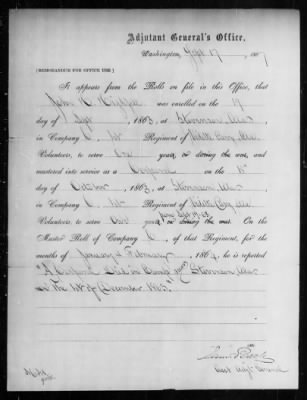 Adjutant General's Office,
Washington, Sept 17, 1867
[MEMORANDUM FOR OFFICE USE.]
It appears from the Rolls on file in this Office, that
John was enrolled on the 19
day of Sept, 1863, at Stevenson Ala
in Company C, 1st Regiment of
Volunteers, to serve One years, or during the war, and
mustered into service as a Corporal on the
day of October, 1863, at Stevenson Ala
in Company C, 1st Regiment of
from Sept 19-63
Volunteers, to serve One years, or during the war. On the
Muster Roll of Company C, of that Regiment, for the
months of January & February, 1864, he is reported
"A Corporal Died in Camp Stevenson Ala
on the 1st of December 1863."
Asst Adjt General